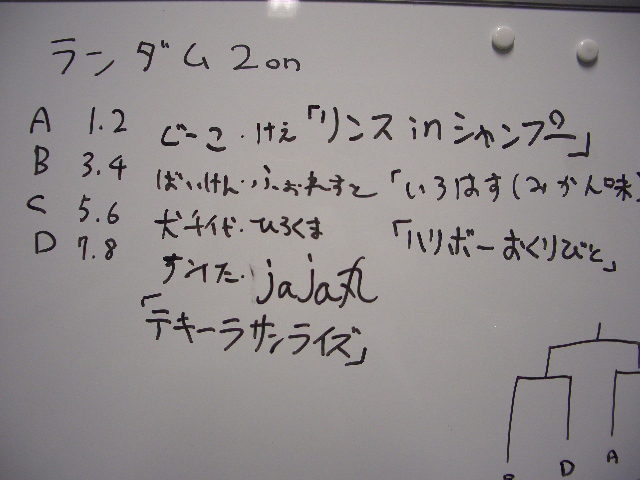 ランダム2on
A 1.2 じーこ・けえ「リンス in シャンプー」
B 3.4 ばいけん・ふぉれすと「いろはす(みかん味)
C 5.6 犬千代・ひろくま「ハリボーおくりびと」
D 7.8 ナイた・jaja丸
「テキーラサンライズ」
D A